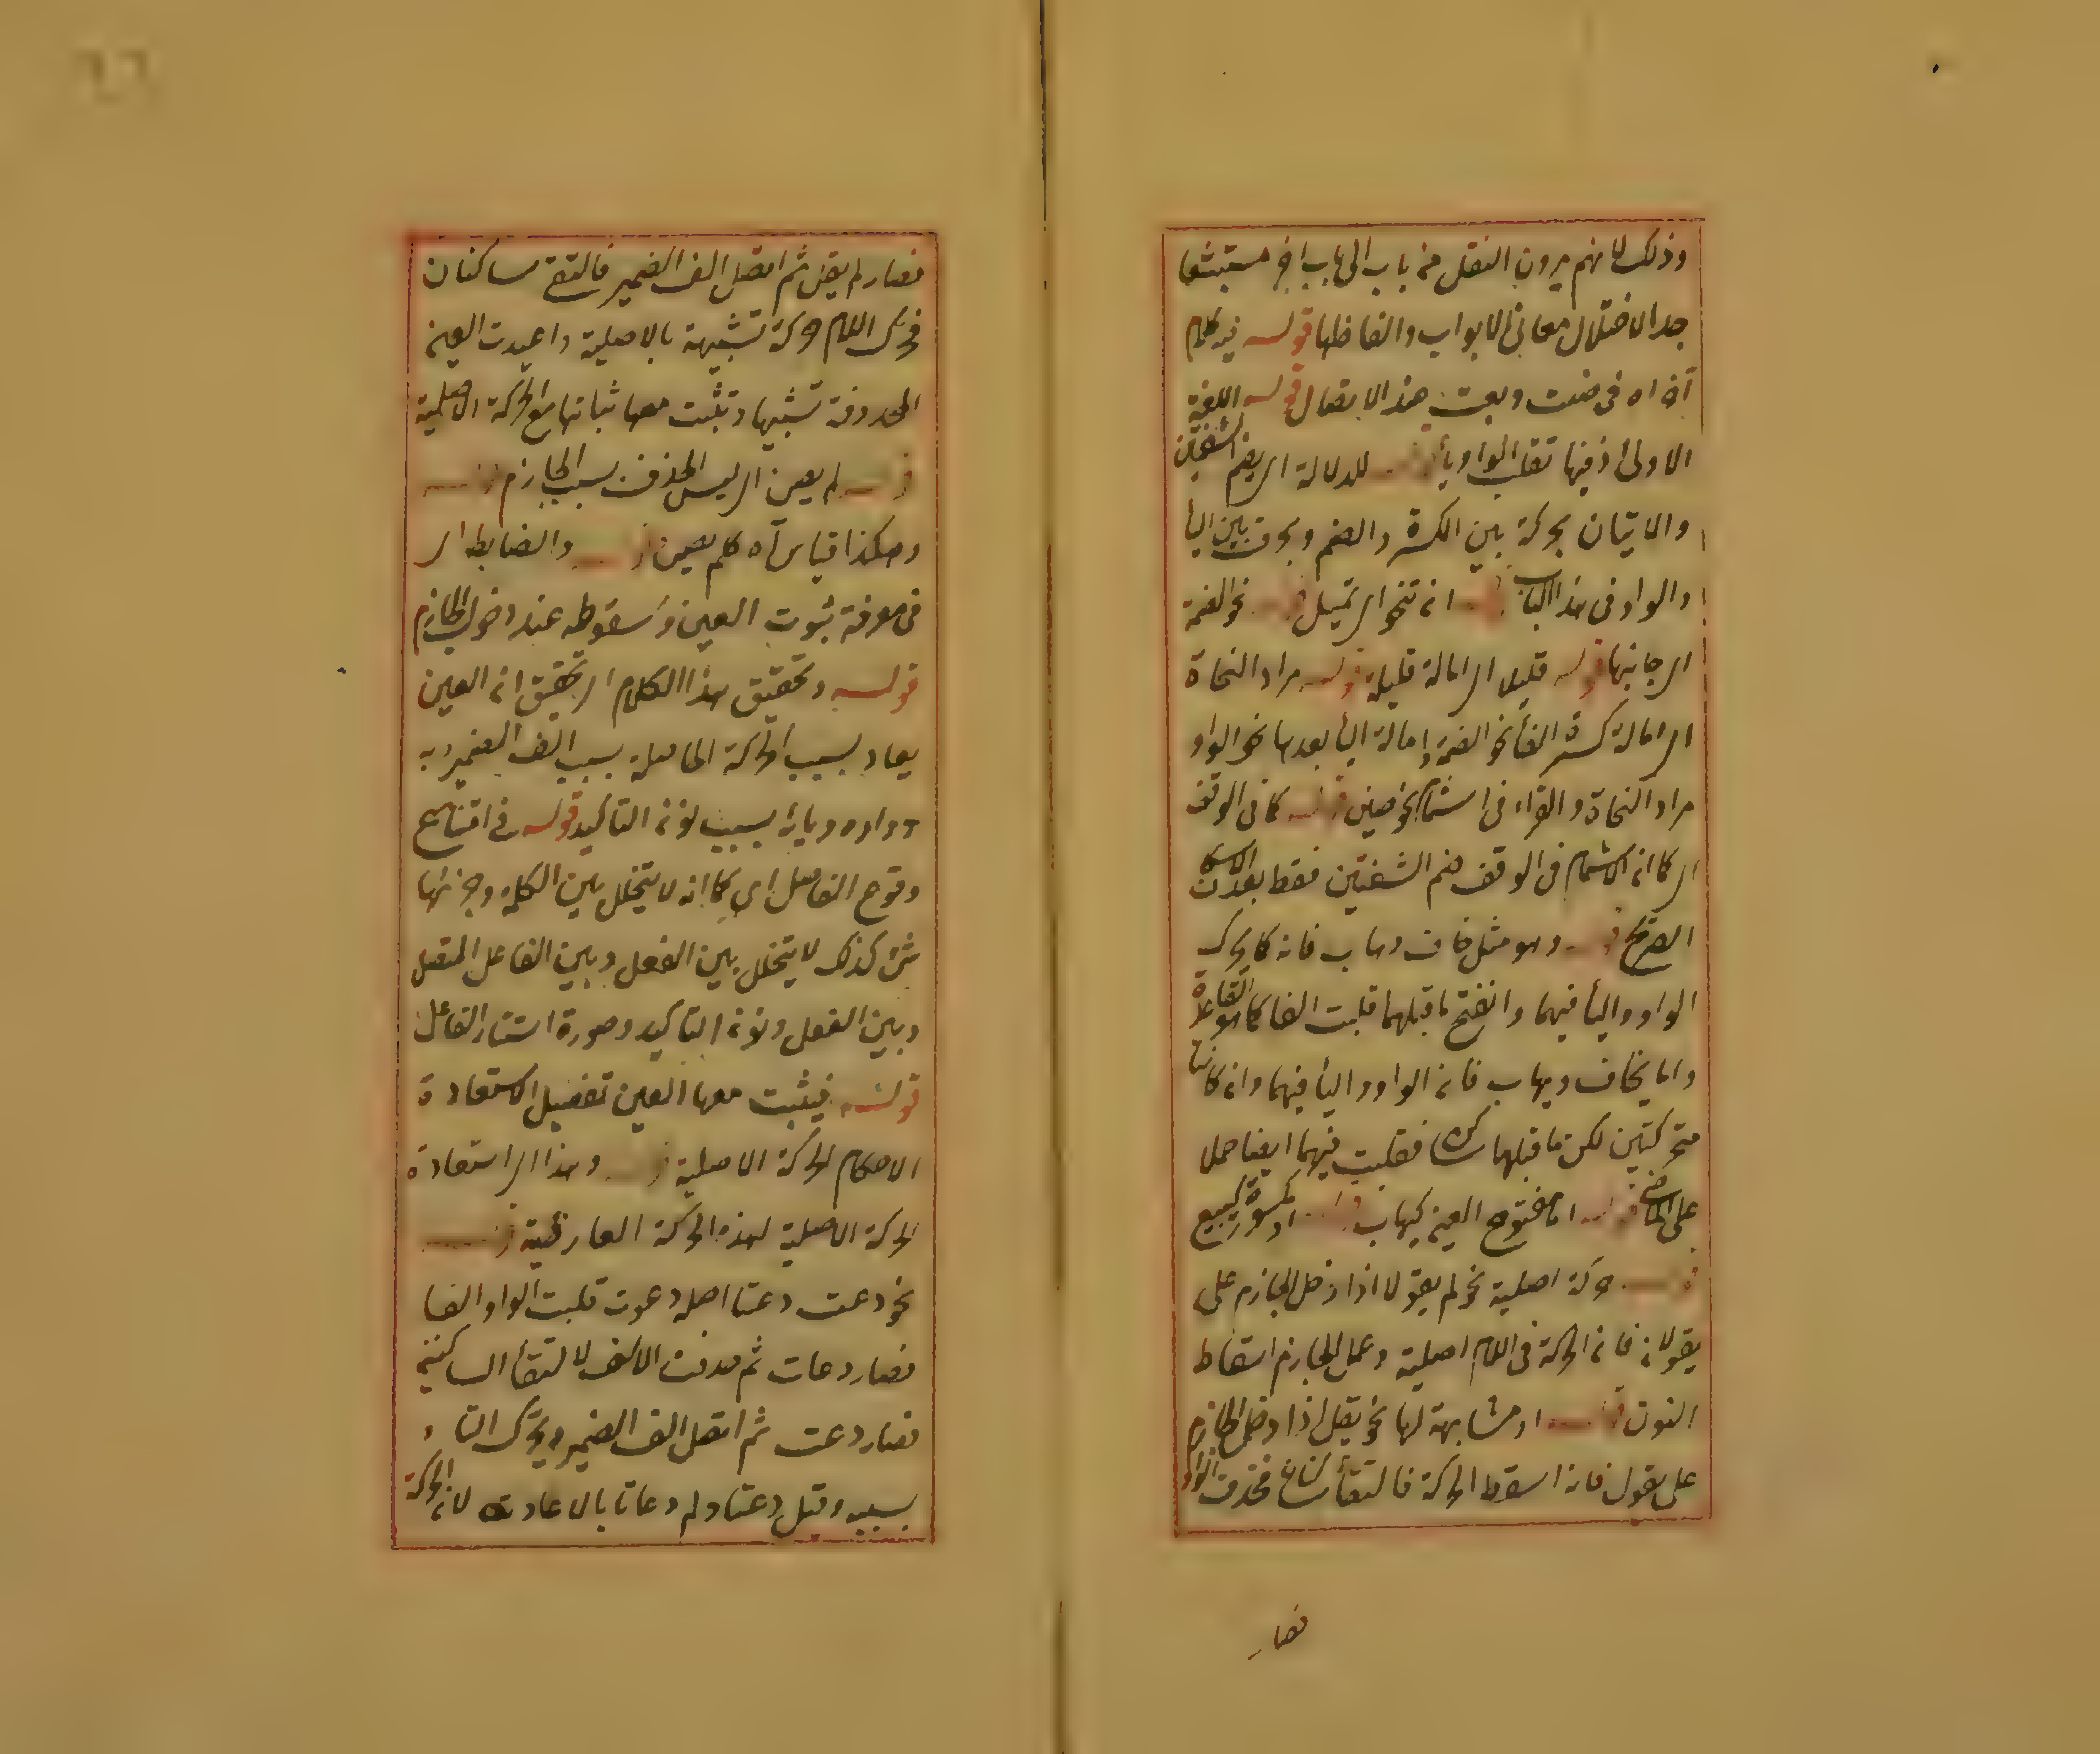 وذلك لانهم يرون النقل من باب الى باب اخر مستبشعا
جدا لاختلال معانى الابواب والفاظها قوله فيه كلام
آه اه فى ضت وبعت هذا الاتصال قوله اللغة
الاولى اذ فيها تقلب الواو يأ قوله للدلالة اى بضم الشفتين
والاتيان بحركة بين الكسرة والضم وبحرف بين اليأ
والواو فى هذا الباب قوله ان تنحو اى تميل قوله نحو الضمة
اى جانبها قوله قليلا اى امالة قليلة قوله مراد النحاة
اى امالة كسرة الفأ نحو الضمة وامالة اليأ بعدها نحو الواو
مراد النحاة والقراء فى اشمام نحو صين قوله كما فى الوقف
اى كما ان الاشمام فى الوقف ضم الشفتين فقط بعد الاسكان
الصريح قوله وهو مثل خاف وهاب فانه كما تحرك
الواو واليأ فيهما وانفتح ما قبلهما قلبت الفا كما هو القاعدة
واما يخاف ويهاب فان الواو واليأ فيهما وان كانتا
متحركتين لكن ما قبلهما ساكن فقلبت فيهما ايضا حملا
على الماضى قوله اما مفتوح العين كيهاب قوله او مكسوره كيبيع
قوله حركة اصلية نحو لم يقولا اذا دخل الجازم على
يقولان فان الحركة فى اللام اصلية وعمل الجازم اسقاط
النون قوله او مشابهة لها نحو يقل اذا دخل الجازم
على يقول فانه اسقط الحركة فالتقأ ساكنان فحذفت الواو
فصار
فصار لم يقل ثم اتصل الف الضمير فالتقى ساكنان
فحرك اللام حركة شبيهة بالاصلية واعيدت العين
المحذوفة تشبيها وتثبت معها ثباتها مع الحركة الاصلية
قوله لم يعين اى ليس الحذف بسبب الجازم قوله
وهكذا قياس آه كلم يصين قوله والضابط اى
فى معرفة ثبوت العين وسقوطه عند دخول الجازم
قوله وتحقيق هذا الكلام اى تحقيق ان العين
يعاد بسبب الحركة الحاصلة بسبب الف الضمير به
وواوه ويائه بسبب نون التاكيد قوله فى امتناع
وقوع الفاصل اى كما انه لا يتخلل بين الكلمة وجزئها
شئ كذلك لا يتخلل بين الفعل وبين الفاعل المتصل
وبين الفعل ونون التاكيد وصورة استتار الفاعل
قوله فيثبت معها العين تفصيل لاستعادة
الاحكام الحركة الاصلية قوله وهذا اى استعادة
الحركة الاصلية لهذه الحركة العارضية قوله
نحو دعت دعتا اصله دعوت قلبت الواو الفا
فصار دعات ثم حذفت الالف لالتقأ الساكنين
فصار دعت ثم اتصل الف الضمير ويحرك التا و
بسببه وقيل دعتا ولم دعاتا بالاعادة لان الحركة